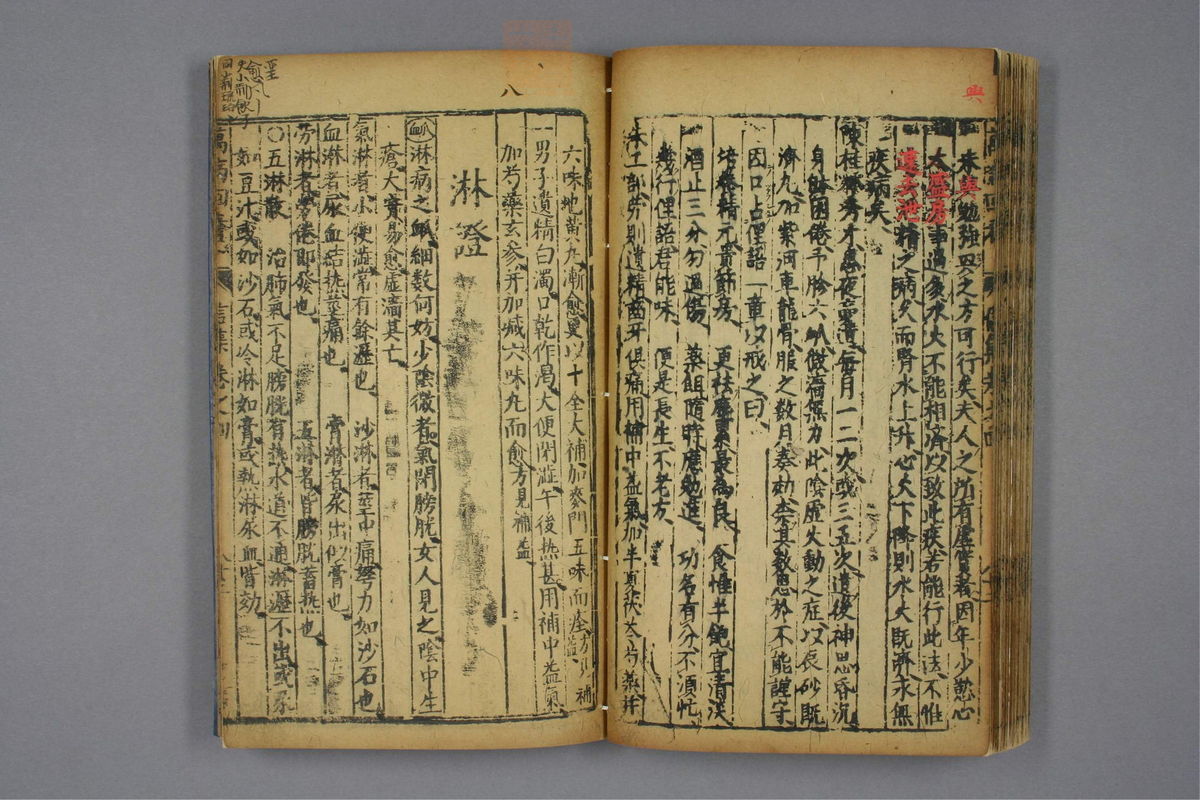 與
來與勉強又之方可行矣夫人之所有虛實者因年少慾心
太盛房事過多水火不能相濟以致此疾若能行此法不惟
遺去泄精之病久而腎水上升心火下降則水火既濟永無
疾病矣
陳桂 秀才患夜夢遺每月一二次或三五次遺後神思昏沉
身體困倦手胗六 微濇無力此陰虛火動之症以辰砂既
濟丸加紫河車龍骨服之數月奏効柰其數患於不能謹守
因口占俚語一章以戒之曰
培養精元貴節房 更祛塵累最為良 食惟半飽宜清淡
酒止三分勿過傷 藥餌隨時應勉進 功名有分不須忙
幾行俚語君能味 便是長生不老方
朱工部勞則遺精齒牙俱痛用補中益氣加半夏茯苓芍藥并
八
六味地黃丸漸愈更以十全大補加麥門五味而痊方見補益
一男子遺精白濁口乾作渴大便閉澀午後熱甚用補中益氣
加芍藥玄參并加減六味丸而愈方見補益
淋證
淋病之 細數何妨少陰微者氣閉膀胱女人見之陰中生
瘡大實易愈虛濇其亡
氣淋者小便澁常有餘瀝也 沙淋者莖中痛努力如沙石也
血淋者尿血結熱莖痛也 膏淋者尿出似膏也
勞淋者勞倦即發也 五淋者皆膀胱蓄熱也
○五淋散 治肺氣不足膀胱有熱水道不通淋瀝不出或尿
如豆汁或如沙石或冷淋如膏或熱淋尿血皆効
萬病回春 信集卷之四